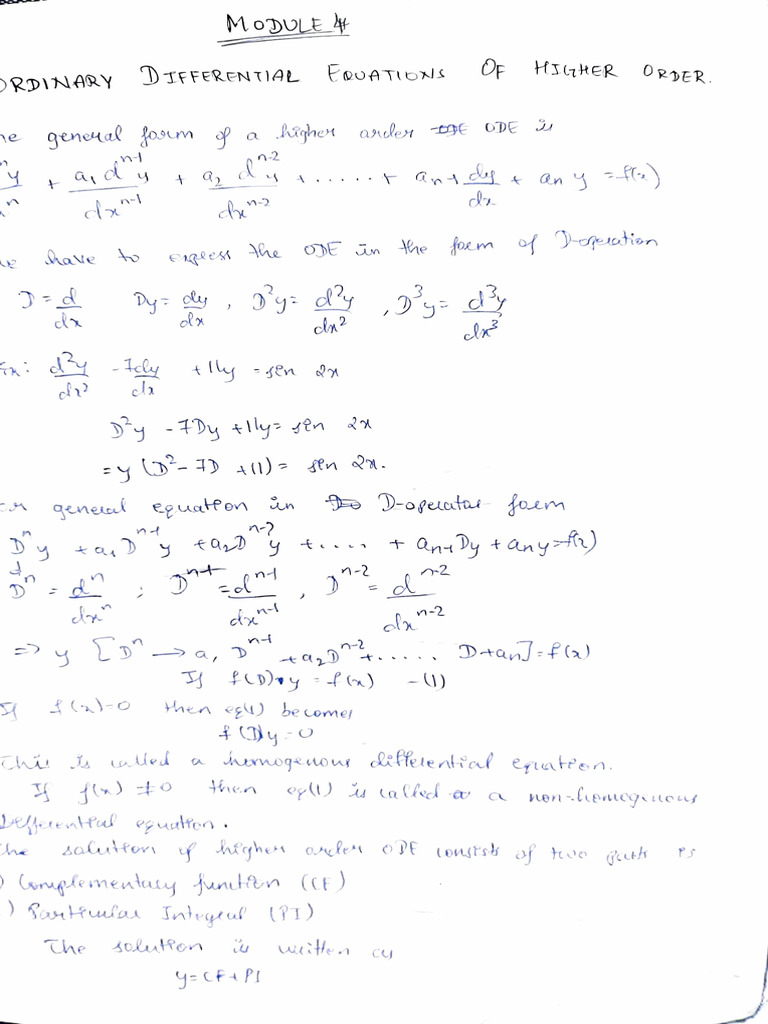 MODULE 4
ORDINARY DIFFERENTIAL EQUATIONS OF HIGHER ORDER.
he general form of a higher order ODE is
ⁿy + a₁ dⁿ⁻¹y/dxⁿ⁻¹ + a₂ dⁿ⁻²y/dxⁿ⁻² + ...... + aₙ₋₁ dy/dx + aₙ y = f(x)
have to express the ODE in the form of D-operation
D = d/dx Dy = dy/dx , D²y = d²y/dx² , D³y = d³y/dx³
Ex: d²y/dx² - 7dy/dx + 11y = sin 2x
D²y - 7Dy + 11y = sin 2x
= y (D² - 7D + 11) = sin 2x.
general equation in D-operator form
Dⁿy + a₁Dⁿ⁻¹y + a₂Dⁿ⁻²y + .... + aₙ₋₁Dy + aₙy = f(x)
Dⁿ = dⁿ/dxⁿ ; Dⁿ⁻¹ = dⁿ⁻¹/dxⁿ⁻¹ , Dⁿ⁻² = dⁿ⁻²/dxⁿ⁻²
=> y [Dⁿ → a₁ Dⁿ⁻¹ + a₂Dⁿ⁻² + ...... D + aₙ] = f(x)
If f(D)·y = f(x) - (1)
If f(x)=0 then eq(1) becomes
f(D)y = 0
This is called a homogenous differential equation.
If f(x) ≠ 0 then eq(1) is called a non-homogenous
Differential equation.
The solution of higher order ODE consists of two parts is
) Complementary function (CF)
) Particular Integral (PI)
The solution is written as
y = CF + PI